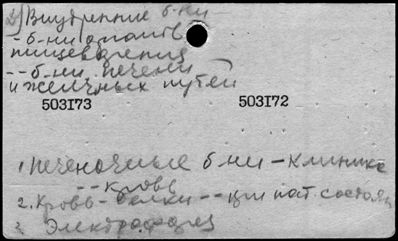 2) Внутренние б-ни
- б-ни органов
пищеварения
-- б-ни печени
и желчных путей
503I73 503I72
1. Печеночные б-ни - клиника
-- кровь
2. Кровь - белки -- при пат. состоян
3. Электрофорез